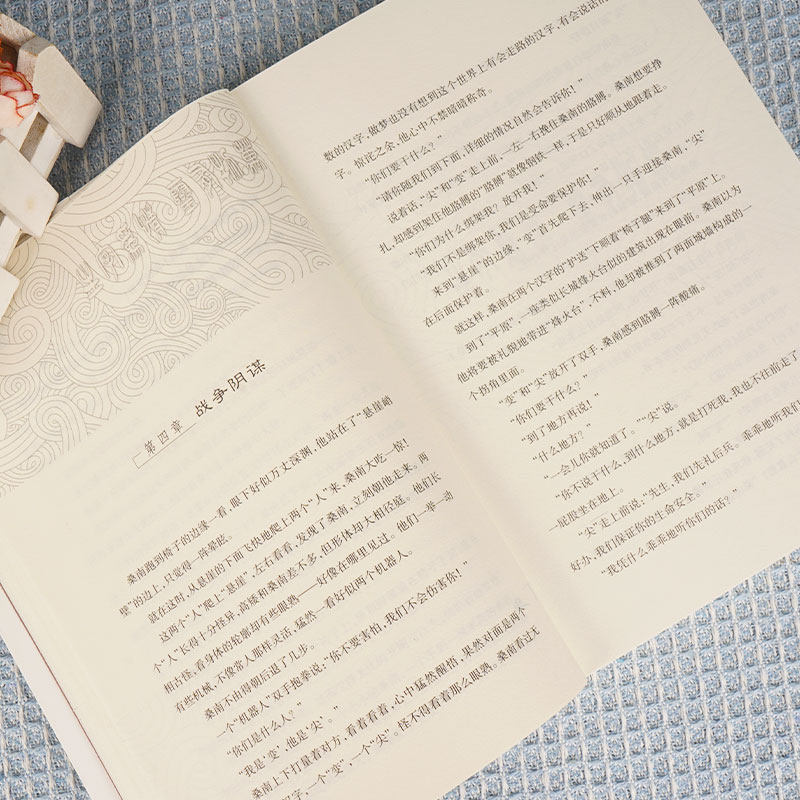 第四章 战争阴谋
桑南跑到椅子的边缘一看，眼下好似万丈深渊，他站在了“悬崖峭
壁”的边上，只觉得一阵晕眩。
就在这时，从悬崖的下面飞快地爬上两个“人”来，桑南大吃一惊！
这两个“人”爬上“悬崖”，左右看看，发现了桑南，立刻朝他走来。两
个“人”长得十分怪异，高矮和桑南差不多，但形体却大相径庭。他们长
相古怪，看身体的轮廓却有些眼熟——好像在哪里见过。他们一举一动
有些机械，不像常人那样灵活，猛然一看好似两个机器人。
桑南不由得朝后退了几步。
一个“机器人”双手抱拳说：“你不要害怕，我们不会伤害你！”
“你们是什么人？”
“我是‘变’，他是‘尖’。”
桑南上下打量着对方，看着看着，心中猛然醒悟，果然对面是两个
汉字，一个“变”，一个“尖”。怪不得看着那么眼熟。桑南看过无
数的汉字，做梦也没有想到这个世界上有会走路的汉字，有会说话的
字。惊诧之余，他心中不禁暗暗称奇。
“你们要干什么？”
“请你随我们到下面，详细的情况自然会告诉你！”
说着话，“尖”和“变”走上前，一左一右搀住桑南的胳膊。桑南想要挣
扎，却感到架住他胳膊的“胳膊”就像钢铁一样，于是只好顺从地跟着走。
“你们为什么绑架我？放开我！”
“我们不是绑架你，我们是受命要保护你！”
来到“悬崖”的边缘，“变”首先爬下去，伸出一只手迎接桑南，“尖”
在后面保护着。
就这样，桑南在两个汉字的“护送”下顺着“椅子腿”来到了“平原”上。
到了“平原”，一座类似长城烽火台似的建筑出现在眼前。桑南以为
他将要被礼貌地带进“烽火台”，不料，他却被推到了两面城墙构成的一
个拐角里面。
“变”和“尖”放开了双手，桑南感到胳膊一阵酸痛。
“你们要干什么？”
“到了地方再说！”
“什么地方？”
“一会儿你就知道了。”“尖”说。
“你不说干什么，到什么地方，就是打死我，我也不往前走了
一屁股坐在地上。
“尖”走上前说：“先生，我们先礼后兵。乖乖地听我们
好办，我们保证你的生命安全。”
“我凭什么乖乖地听你们的话？”